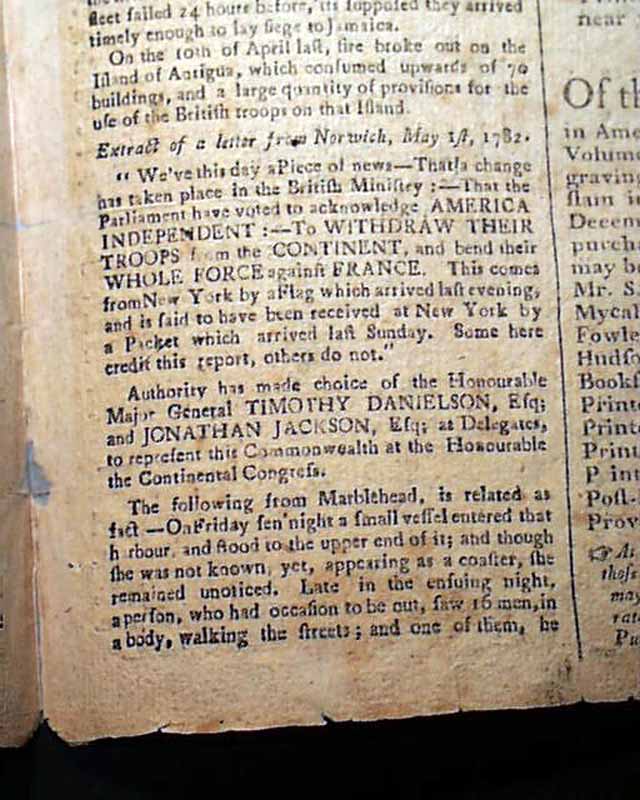 fleet sailed 24 hours before, its supposed they arrived
timely enough to lay siege to Jamaica.
On the 10th of April last, fire broke out on the
Island of Antigua, which consumed upwards of 70
buildings, and a large quantity of provisions for the
use of the British troops on that Island.
Extract of a letter from Norwich, May 1st, 1782.
" We've this day aPiece of news—That!a change
has taken place in the British Ministry :—That the
Parliament have voted to acknowledge AMERICA
INDEPENDENT :—To WITHDRAW THEIR
TROOPS from the CONTINENT, and bend their
WHOLE FORCE against FRANCE. This comes
fromNew York by aFlag which arrived last evening,
and is said to have been received at New York by
a Packet which arrived last Sunday. Some here
credit this report, others do not."
Authority has made choice of the Honourable
Major General TIMOTHY DANIELSON, Esq;
and JONATHAN JACKSON, Esq; as Delegates,
to represent this Commonwealth at the Honourable
the Continental Congress.
The following from Marblehead, is related as
fact —OnFriday sen'night a small vessel entered that
h rbour, and stood to the upper end of it; and though
she was not known, yet, appearing as a coaster, she
remained unoticed. Late in the ensuing night,
a person, who had occasion to be out, saw 16 men, in
a body, walking the streets; and one of them, he
near
Of th
in Ame
Volume
graving
slam i
Decem
purcha
may be
Mr. S.
Mycal
Fowle
Hudso
Books
Printe
Printe
Printe
P int
Post-
Prov
☞ At
those
may
rat
Pu